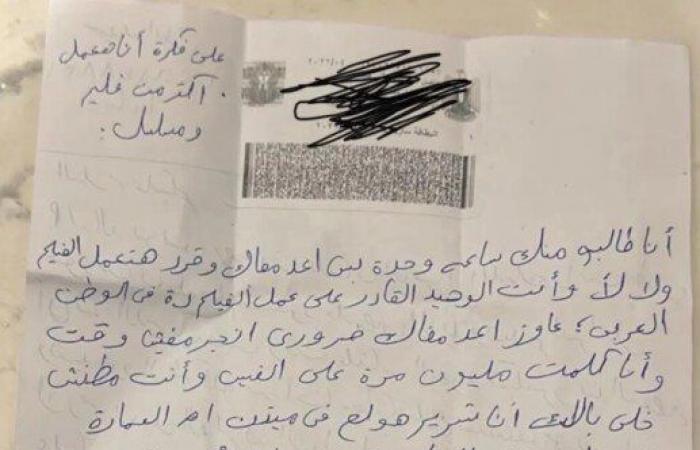 على فكرة أنا هعمل
أكتر من فليم
ومسلسل.
البطاقة سارية
أنا طالبو منك ساعه وحدة بس اعد معاك وقرر هتعمل الفيلم
ولا لأ وأنت الوحيد القادر على عمل الفيلم دة فى الوطن
العربى؛ عاوز اعد معاك ضرورى انجز مفيش وقت
وأنا كلمتك مليون مرة على الفيس وأنت مطنش
خلى بالك أنا شرير هولع فى ام العمارة